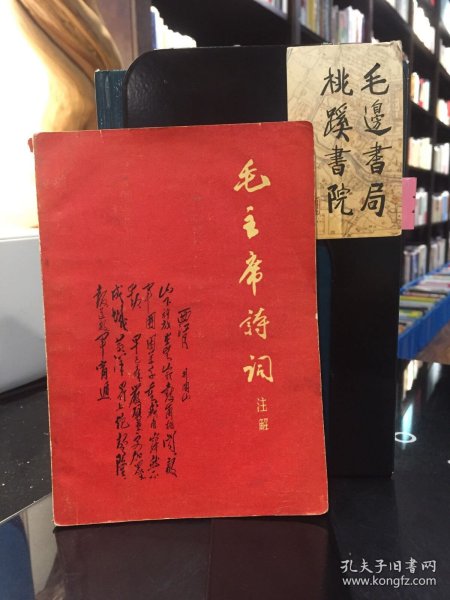 毛邊書局
桃蹊書院
毛主席詩词
注解
西江月
井岡山
山下旌旗在望山头鼓角相闻敌
軍圍困万千重我自岿然不
動早已森嚴壁壘更加众志
成城黄洋界上炮声隆
报道敌軍宵遁
孔夫子旧书网
www.kongfz.com